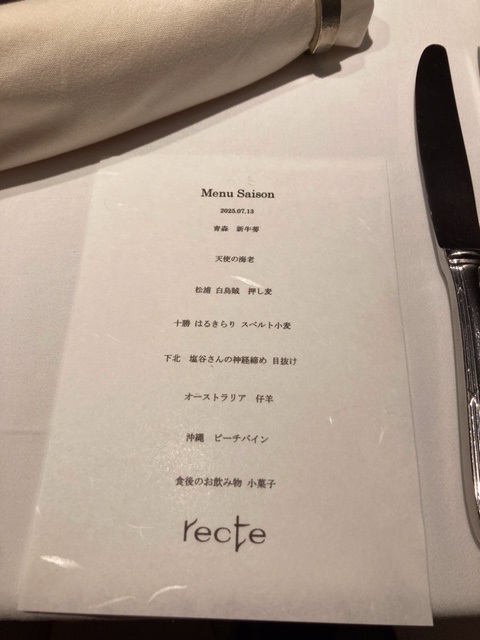 Menu Saison
2023.07.13
青森 新牛蒡
天使の海老
松浦 白烏賊 押し麦
十勝 はるきらり スペルト小麦
下北 塩谷さんの神経締め 目抜け
オーストラリア 仔羊
沖縄 ピーチパイン
食後のお飲み物 小菓子
recte